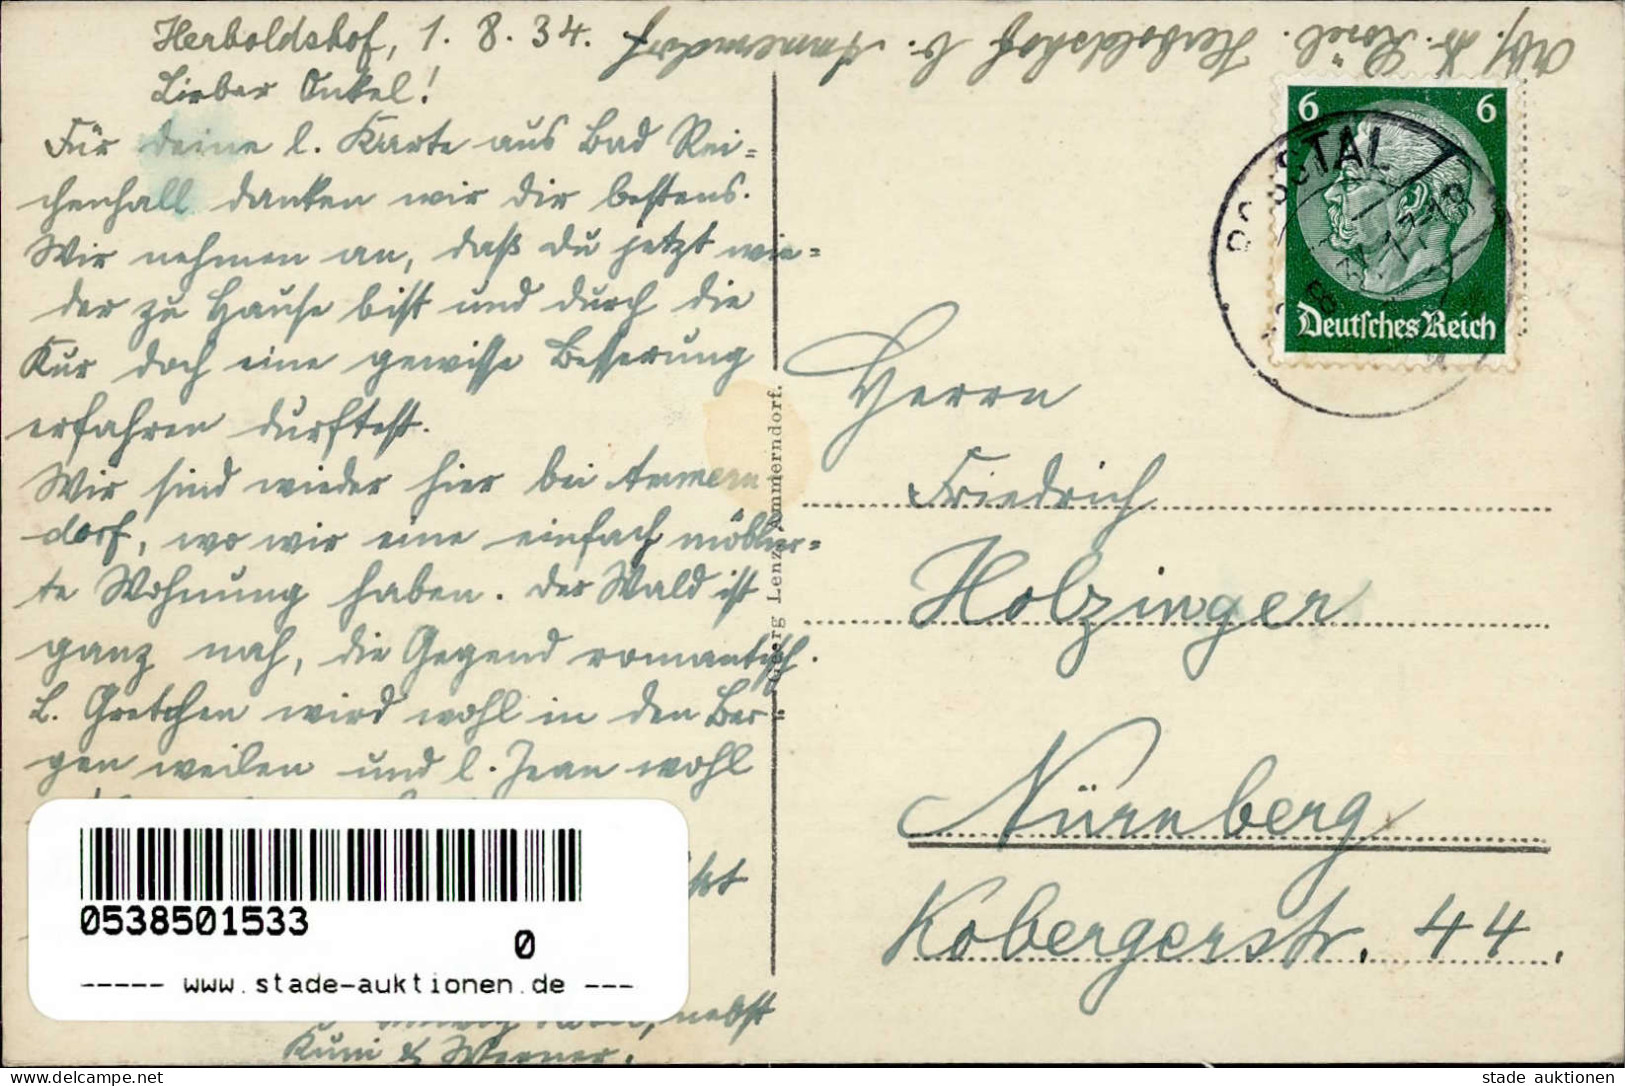 Herboldshof, 1. 8. 34.
Lieber Onkel!
Für deine l. Karte aus Bad Rei=
chenhall danken wir dir bestens.
Wir nehmen an, daß du jetzt wie=
der zu Hause bist und durch die
Kur doch eine gewisse Besserung
erfahren durftest.
Wir sind wieder hier bei Ammern
dorf, wo wir eine einfach möblier=
te Wohnung haben. Der Wald ist
ganz nah, die Gegend romantisch.
L. Gretchen wird wohl in den Ber=
gen weilen und l. Jean wohl
nebst
Kuni & Werner.
Abs. Rösel. Herboldshof b. Ammerndorf
Georg Lenz, Ammerndorf.
6 6
Deutsches Reich
ROSSTAL
Herrn
Friedrich
Holzinger
Nürnberg
Kobergerstr. 44.
0538501533
0
----- www.stade-auktionen.de ---
delcampe.net
stade auktionen